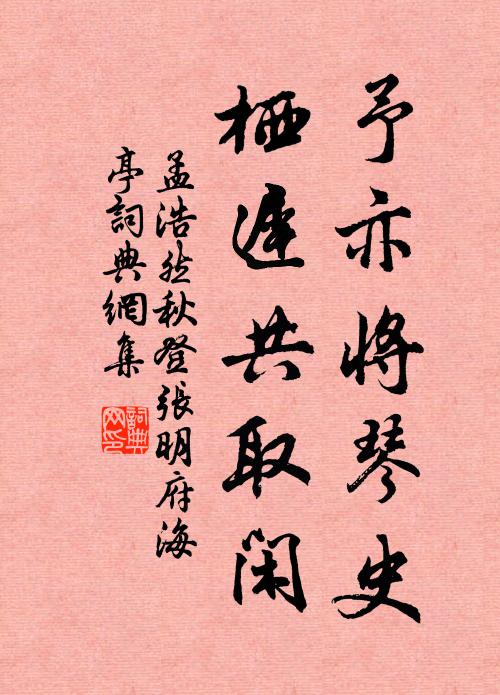 予亦將琴史
栖遲共取閑
孟浩然秋登張明府海
亭詞典網集
詞典网印